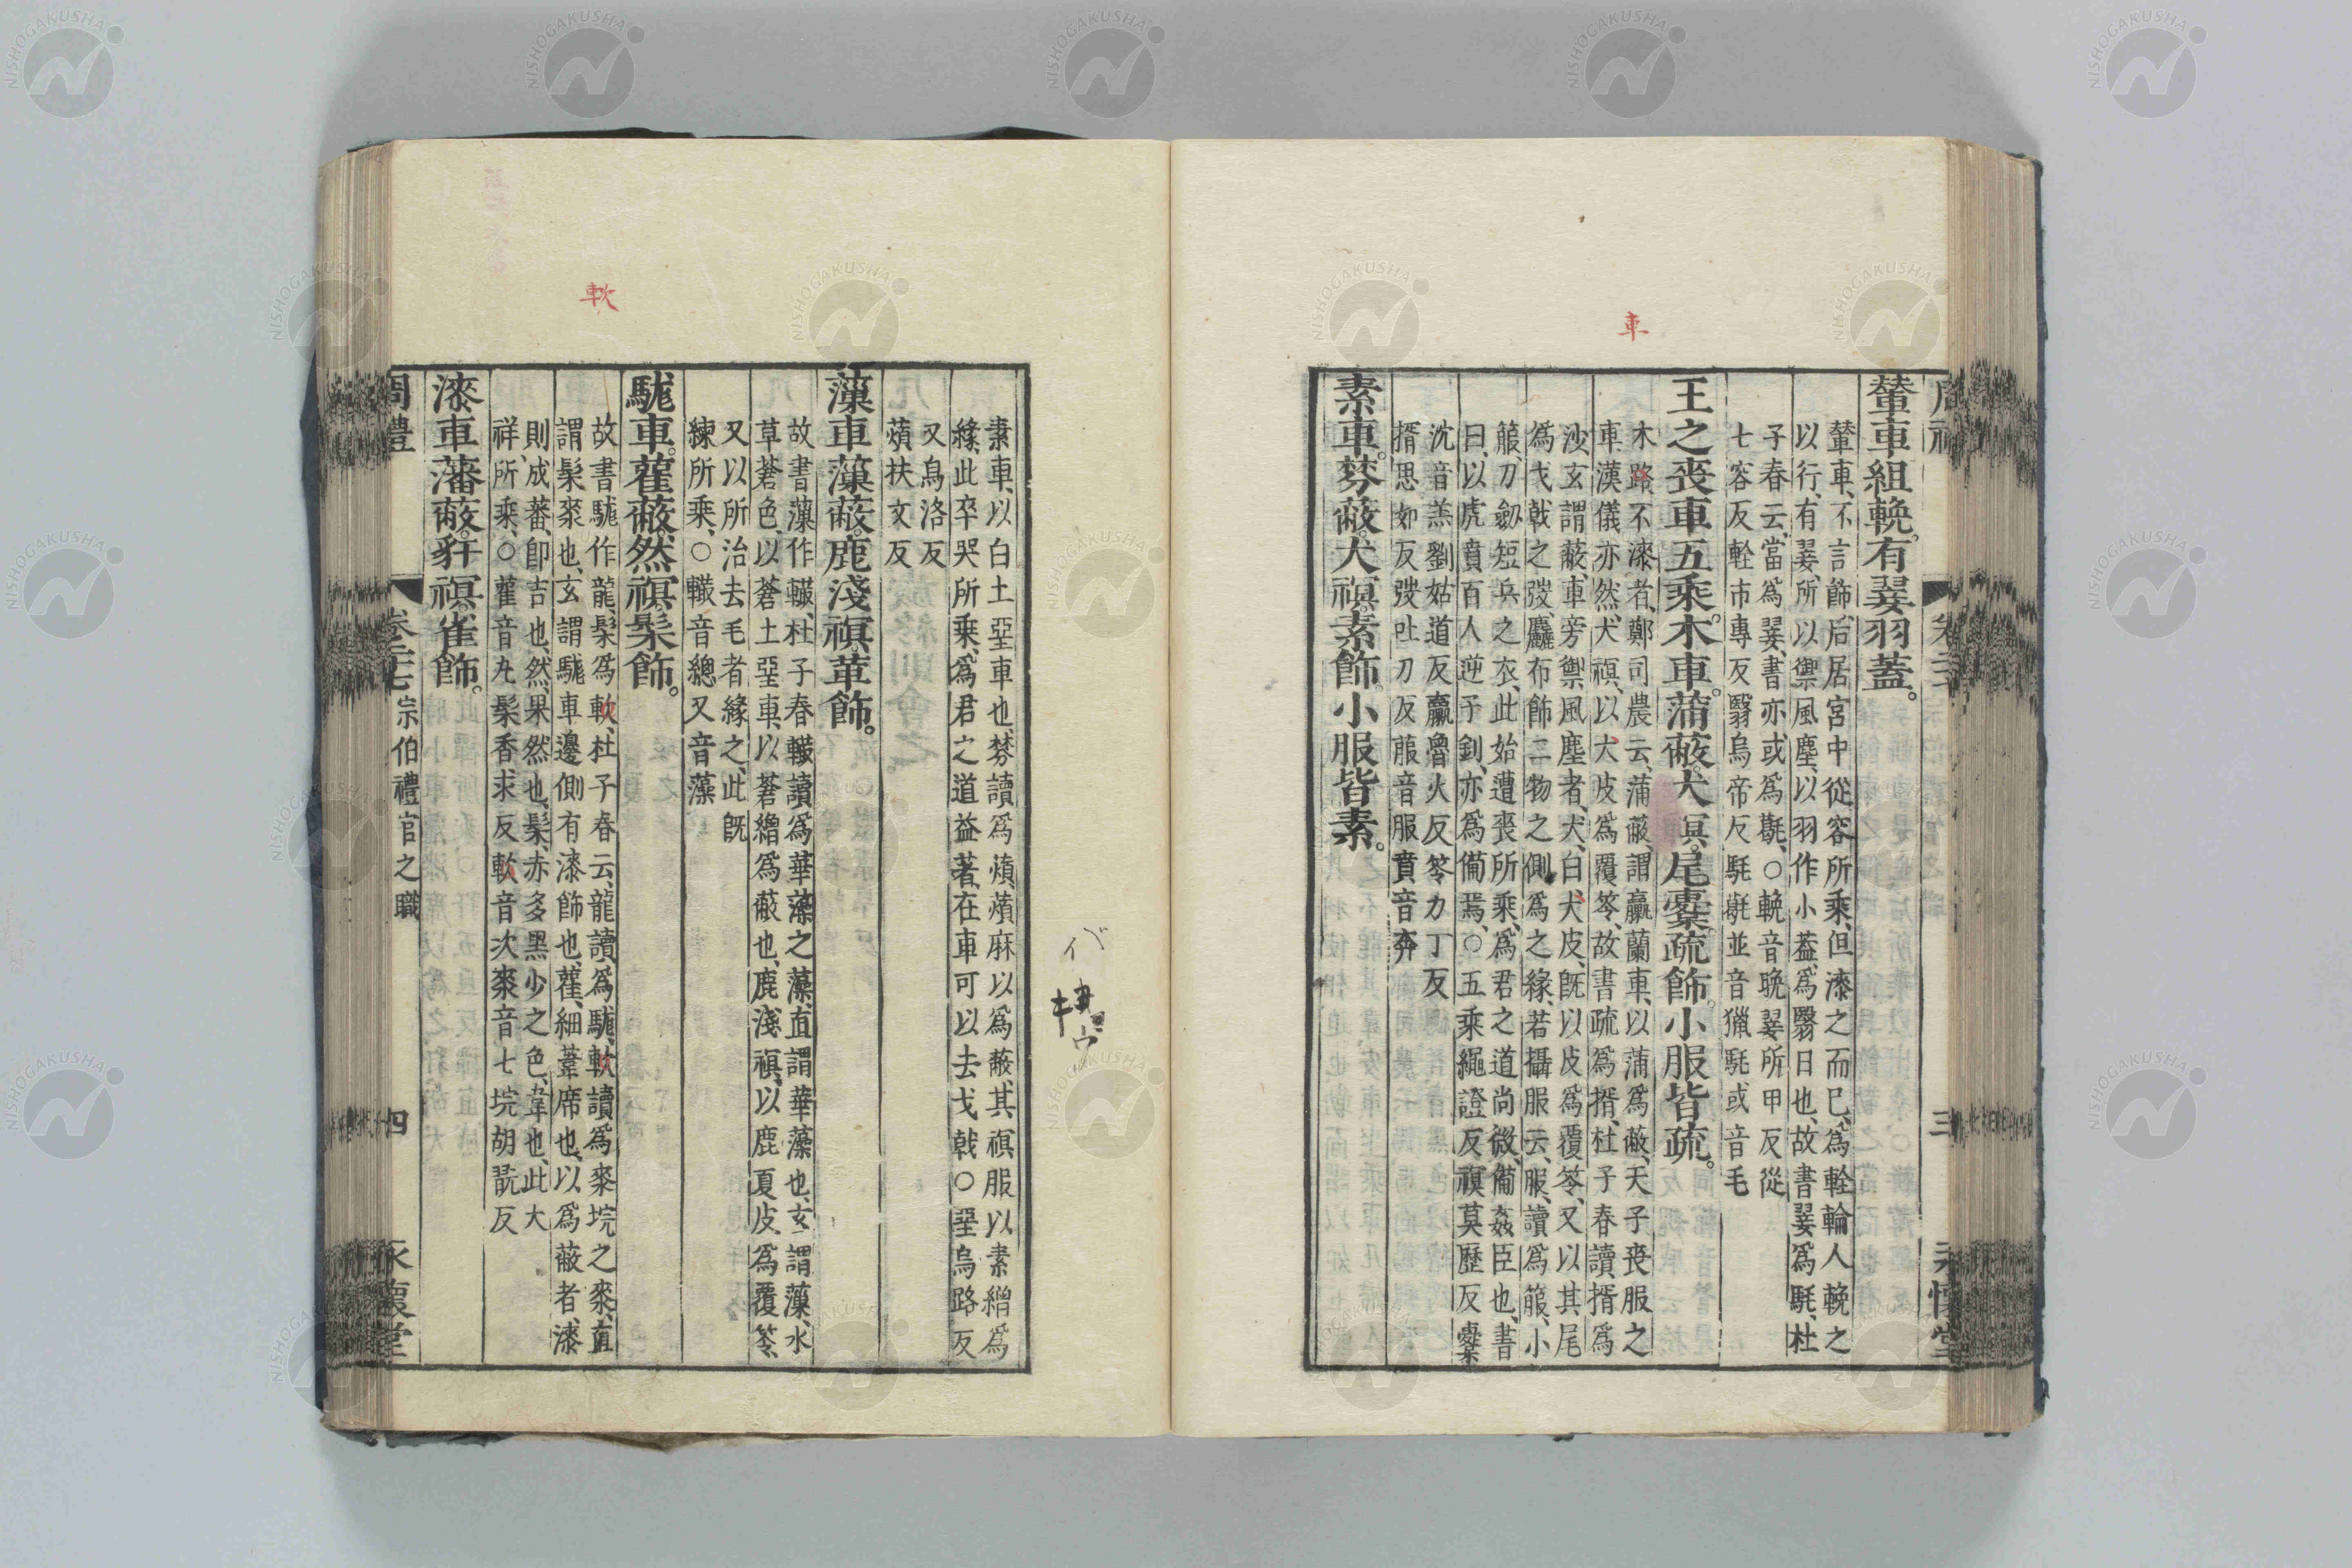 輦車組輓。有翣羽蓋。
輦車、不言飾、后居宮中從容所乘、但漆之而已、爲輇輪人輓之
以行、有翣、所以禦風塵、以羽作小葢、爲翳日也、故書翣爲毦、杜
子春云、當爲翣、書亦或爲毼、○輓音晚翣所甲反從
七容反輇市專反翳烏帝反毦毼並音獵毦或音毛
王之喪車五乘。木車。蒲蔽。犬䄙。尾櫜。疏飾。小服皆疏。
木路不漆者、鄭司農云、蒲蔽、謂臝蘭車、以蒲爲蔽、天子喪服之
車、漢儀亦然、犬䄙、以犬皮爲覆笭、故書疏爲揟、杜子春讀揟爲
沙、玄謂蔽、車旁禦風塵者、犬、白犬皮、旣以皮爲覆笭、又以其尾
爲戈戟之弢、麤布飾二物之側爲之緣、若攝服云、服、讀爲箙、小
箙、刀劒短兵之衣、此始遭喪所乘、爲君之道尚微、備姦臣也、書
曰、以虎賁百人逆子釗、亦爲備焉、○五乘繩證反䄙莫歷反櫜
沈音羔劉姑道反臝魯火反笭力丁反
揟思如反弢吐刀反箙音服賁音奔
素車。棼蔽。犬䄙。素飾。小服皆素。
素車、以白土堊車也、棼讀爲薠、薠麻以爲蔽、其䄙服以素繒爲
緣、此卒哭所乘、爲君之道益著、在車可以去戈戟○堊烏路反
又烏洛反
薠扶文反
薻車。薻蔽。鹿淺䄙。革飾。
故書薻作轍、杜子春轍讀爲華藻之藻、直謂華藻也、玄謂薻、水
草、蒼色、以蒼土堊車、以蒼繒爲蔽也、鹿淺䄙、以鹿夏皮、爲覆笭、
又以所治去毛者緣之、此旣
練所乘、○轍音總又音藻
駹車。雚蔽。然䄙。髤飾。
故書駹作龍、髤爲軟、杜子春云、龍讀爲駹、軟讀爲桼垸之桼、直
謂髤桼也、玄謂駹車邊側有漆飾也、雚、細葦席也、以爲蔽者、漆
則成蕃、卽吉也、然、果然也、髤、赤多黑少之色、韋也、此大
祥所乘、○雚音丸髤香求反軟音次桼音七垸胡翫反
漆車藩蔽。豻䄙。雀飾。
周禮
卷二十七 宗伯禮官之職
四
永懷堂
三
車
軟